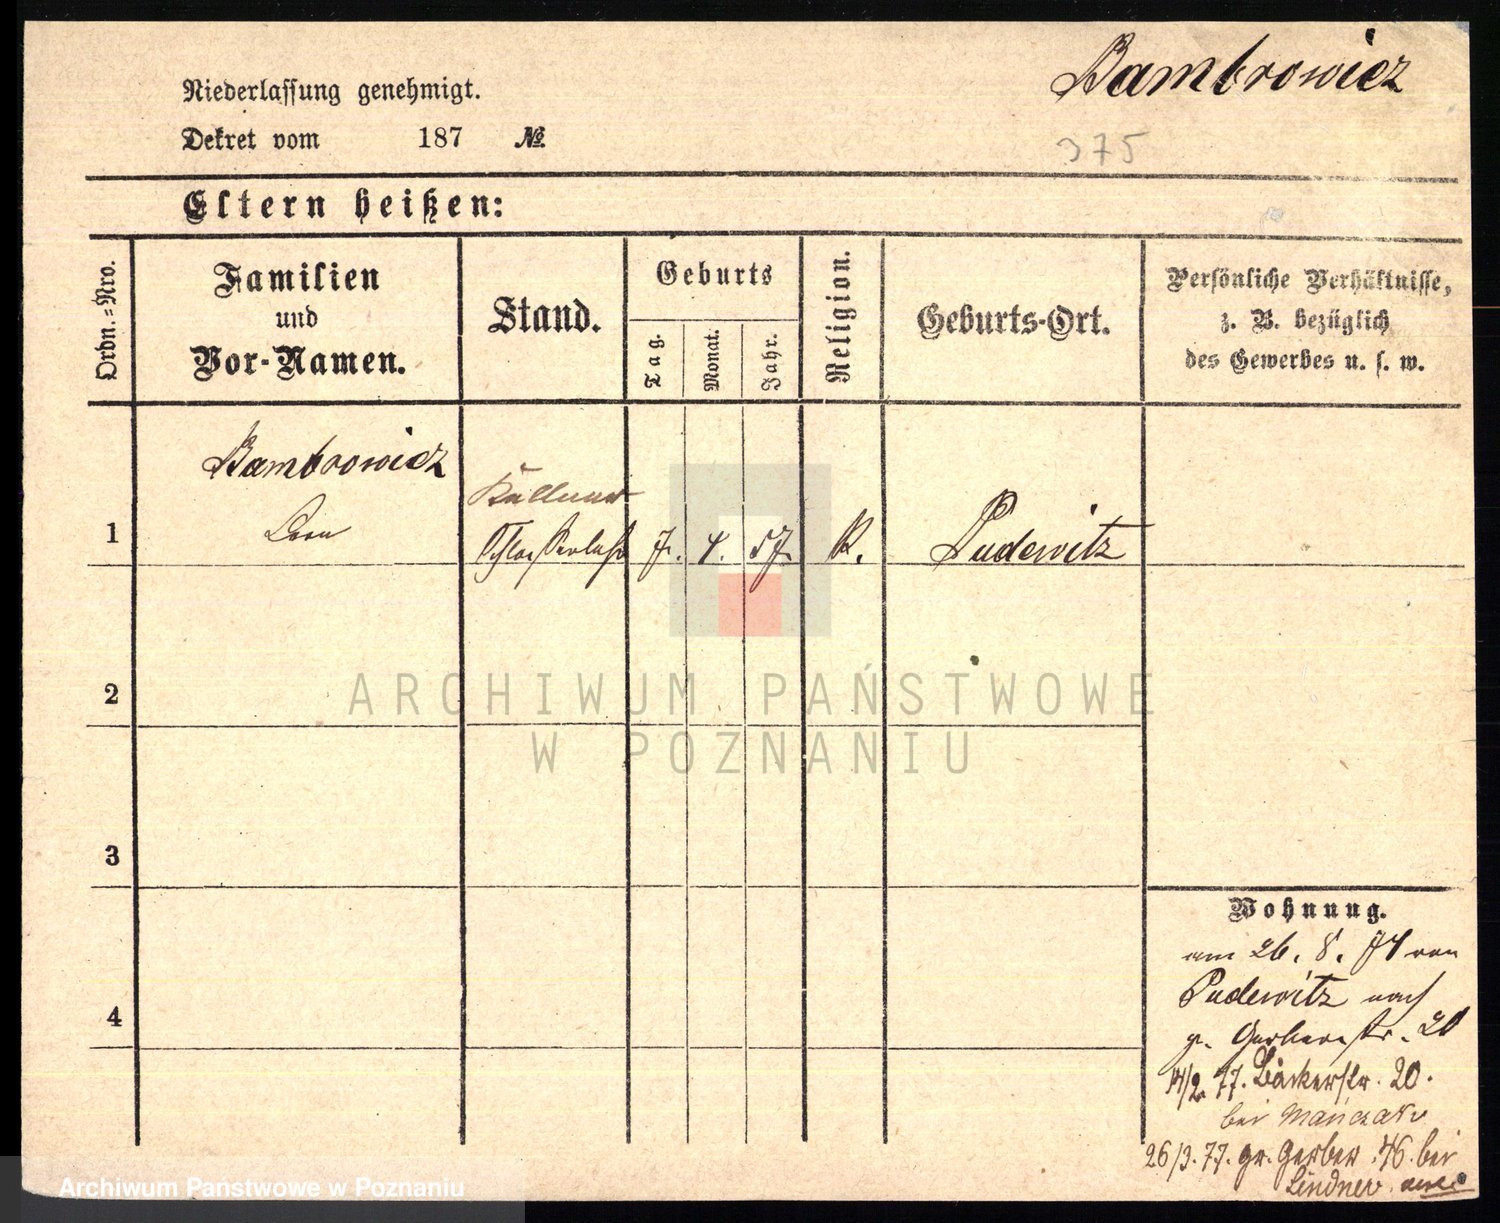 Bambrowicz
Niederlassung genehmigt.
Dekret vom 187 №
375
Eltern heißen:
Ordn.=Nro.
Familien
und
Vor-Namen.
Stand.
Geburts
Tag.
Monat.
Jahr.
Religion.
Geburts-Ort.
Persönliche Verhältnisse,
z. B. bezüglich
des Gewerbes u. s. w.
Bambrowicz
Leon
Kellner
1
7. 4. 57.
K.
Pudewitz
2
3
4
Wohnung.
am 26. 8. 74 von
Pudewitz nach
gr. Gerberstr. 20
14/2 77. Bäckerstr. 20.
bei Mańczak
26/3. 77. gr. Gerber 46. bei
Lindner
ARCHIWUM PAŃSTWOWE
W POZNANIU
Archiwum Państwowe w Poznaniu